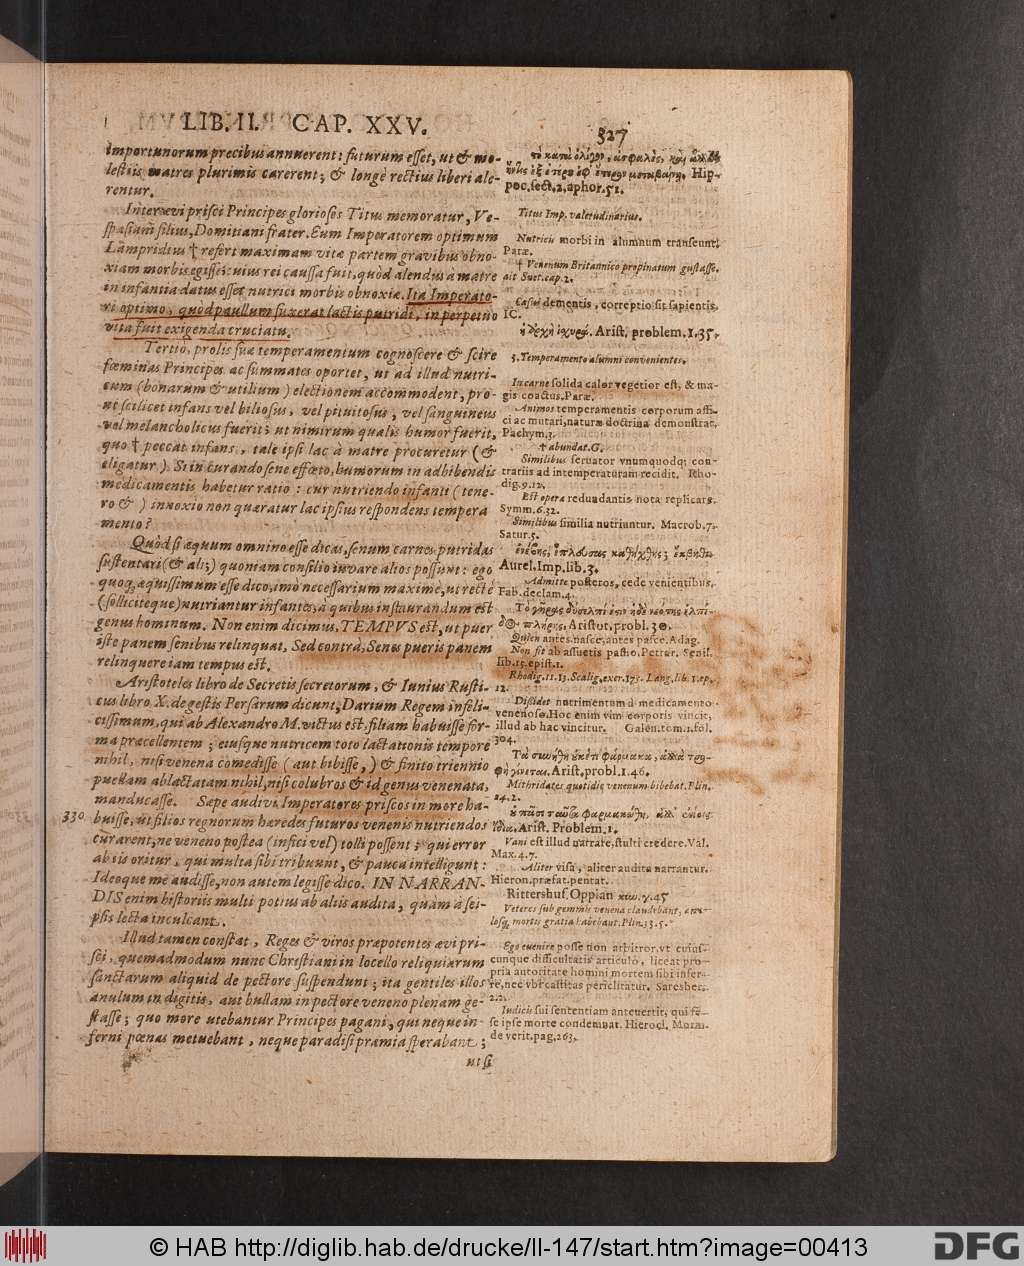 LIB. II. CAP. XXV. 327
importunorum precibus annuerent: futurum esset, ut & mo-
lestiis matres plurimis carerent; & longè rectius liberi ale-
rentur.
Inter ævi prisci Principes gloriosos Titus memoratur, Ve-
spasiani filius, Domitiani frater. Eum Imperatorem optimum
Lampridius † refert maximam vitæ partem gravibus obno-
xiam morbis egisse: cuius rei caussa fuit, quòd alendus à matre
in infantia datus esset nutrici morbis obnoxiæ. Ita Imperato-
ri optimo, quòd paullum suxerat lactis putridi, in perpetuo
vita fuit exigenda cruciatu.
Tertiò, prolis suæ temperamenium cognoscere & scire
fœminas Principes ac summates oportet, ut ad illud nutri-
cum (bonarum & utilium) electionem accommodent, pro-
ut scilicet infans vel biliosus, vel pituitosus, vel sanguineus
vel melancholicus fuerit; ut nimirum qualis humor fuerit,
quo † peccat infans, tale ipsi lac à matre procuretur (&
eligatur). Si in curando sene effœto, humorum in adhibendis
medicamentis habetur ratio: cur nutriendo infanti (tene-
ro & ) innoxio non quæratur lac ipsius respondens tempera
mento?
Quòd si æquum omnino esse dicas, senum carnes putridas
sustentari (& ali;) quoniam consilio iuvare alios possunt: ego
quoq; æquissimum esse dico, imò necessarium maximè, ut rectè
(solliciteque) nutriantur infantes, à quibus instaurandum est
genus hominum. Non enim dicimus, TEMPVS est, ut puer
iste panem senibus relinquat, Sed contrà, Senes pueris panem
relinquere iam tempus est.
Aristoteles libro de Secretis secretorum, & Iunius Rusti-
cus libro X. de gestis Persarum dicunt, Darium Regem infeli-
cissimum, qui ab Alexandro M. victus est, filiam habuisse for-
ma præcellentem; eiusque nutricem toto lactationis tempore
nihil, nisi venena comedisse (aut bibisse,) & finito triennio
puellam ablactatam nihil, nisi colubros & id genus venenata,
manducasse. Sæpe audivi, Imperatores priscos in more ha-
330 buisse, ut filios regnorum hæredes futuros venenis nutriendos
curarent, ne veneno postea (infici vel) tolli possent; qui error
ab iis oritur, qui multa sibi tribuunt, & pauca intelligunt:
Ideoque me audisse, non autem legisse dico. IN NARRAN-
DIS enim historiis multi potius ab aliis audita, quàm à sei-
psis lecta inculcant.
Illud tamen constat, Reges & viros præpotentes ævi pri-
sci, quemadmodum nunc Christiani in locello reliquiarum
sanctarum aliquid de pectore suspendunt; ita gentiles illos
anulum in digitis, aut bullam in pectore veneno plenam ge-
stasse; quo more utebantur Principes pagani, qui neque in-
ferni pœnas metuebant, neque paradisi præmia sperabant;
ut si
τὸ κατὰ ὀλίγον, ἀσφαλὲς, καὶ
Hip-
poc. sect. 2. aphor. 51.
Titus Imp. valetudinarius.
Nutricis morbi in alumnum transeunt.
Paræ.
† Venenum Britannico propinatum gustasse.
ait Suet. cap. 2.
Casus dementis, correptio fit sapientis.
IC.
ἡ ἀρχὴ ἰσχυρά. Arist. problem. 1. 35.
3. Temperamento alumni convenientes.
In carne solida calor vegetior est, & ma-
gis coactus. Paræ.
Animos temperamentis corporum affi-
ci ac mutari, naturæ doctrina demonstrat.
Pachym. 3.
† abundat. G.
Similibus servatur vnumquodq; con-
trariis ad intemperaturam recidit. Rho-
dig. 9. 12.
Est operæ redundantis nota replicare.
Symm. 6. 32.
Similibus similia nutriuntur. Macrob. 7.
Satur. 5.
Aurel. Imp. lib. 3.
Admitte posteros, cede venientibus.
Fab. declam. 4.
Aristot. probl. 30.
Qui en antes nasce, antes pasce. Adag.
Non fit ab assuetis pastio. Petrar. Senil.
lib. 15. epist. 1.
Rhodig. 11. 13. Scalig. exer. 175. Lang. lib. 1. ep.
12.
Distdet nutrimentum à medicamento
venenoso. Hoc enim vim corporis vincit,
illud ab hac vincitur. Galen. tom. 1. fol.
304.
Τὰ συνήθη οὐκέτι φάρμακα, ἀλλὰ τρο-
φὴ γίνεται. Arist. probl. 1. 46.
Mithridates quotidie venenum bibebat. Plin.
24. 2.
Arist. Problem. 1.
Vani est illud narrare, stulti credere. Val.
Max. 4. 7.
Aliter visa, aliter audita narrantur.
Hieron. præfat. pentat.
Rittershus. Oppian κυν. γ. 45
Veteres sub gemmis venena claudebant, anu-
losq; mortis gratia habebant. Plin. 33. 5.
Ego evenire posse non arbitror, vt cuius-
cunque difficultatis articulo, liceat pro-
pria autoritate homini mortem sibi infer-
re, nec vbi castitas periclitatur. Saresber.
2. 2.
Iudicis sui sententiam antevertit, qui se-
se ipse morte condemnat. Hierocl. Morn.
de verit. pag. 263.
© HAB http://diglib.hab.de/drucke/ll-147/start.htm?image=00413
DFG